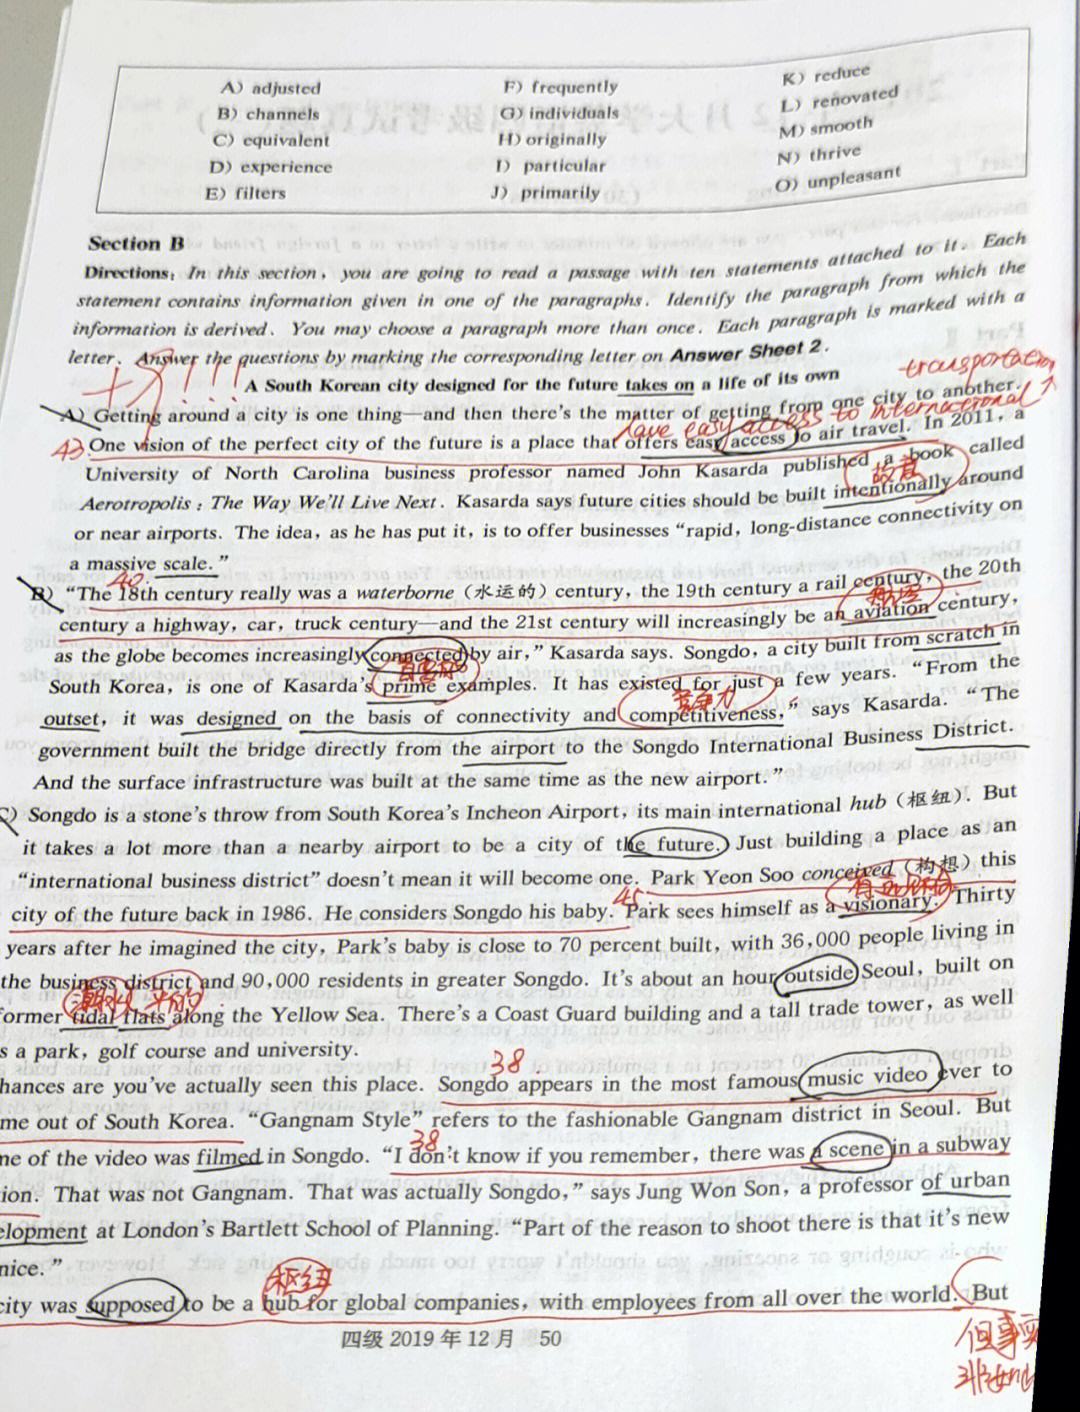 A) adjusted
F) frequently
K) reduce
B) channels
G) individuals
L) renovated
C) equivalent
H) originally
M) smooth
D) experience
I) particular
N) thrive
E) filters
J) primarily
O) unpleasant
Section B
Directions: In this section, you are going to read a passage with ten statements attached to it. Each
statement contains information given in one of the paragraphs. Identify the paragraph from which the
information is derived. You may choose a paragraph more than once. Each paragraph is marked with a
letter. Answer the questions by marking the corresponding letter on Answer Sheet 2.
transportation
A South Korean city designed for the future takes on a life of its own
A) Getting around a city is one thing—and then there's the matter of getting from one city to another.
have easy access to international
43 One vision of the perfect city of the future is a place that offers easy access to air travel. In 2011, a
University of North Carolina business professor named John Kasarda published a book called
故意
Aerotropolis: The Way We'll Live Next. Kasarda says future cities should be built intentionally around
or near airports. The idea, as he has put it, is to offer businesses "rapid, long-distance connectivity on
a massive scale."
40.
B) "The 18th century really was a waterborne (水运的) century, the 19th century a rail century, the 20th
century a highway, car, truck century—and the 21st century will increasingly be an aviation century,
as the globe becomes increasingly connected by air," Kasarda says. Songdo, a city built from scratch in
South Korea, is one of Kasarda's prime examples. It has existed for just a few years. "From the
竞争力
outset, it was designed on the basis of connectivity and competitiveness," says Kasarda. "The
government built the bridge directly from the airport to the Songdo International Business District.
And the surface infrastructure was built at the same time as the new airport."
C) Songdo is a stone's throw from South Korea's Incheon Airport, its main international hub (枢纽). But
it takes a lot more than a nearby airport to be a city of the future. Just building a place as an
"international business district" doesn't mean it will become one. Park Yeon Soo conceived (构想) this
45
city of the future back in 1986. He considers Songdo his baby. Park sees himself as a visionary. Thirty
years after he imagined the city, Park's baby is close to 70 percent built, with 36,000 people living in
the business district and 90,000 residents in greater Songdo. It's about an hour outside Seoul, built on
潮汐的 平的
former tidal flats along the Yellow Sea. There's a Coast Guard building and a tall trade tower, as well
s a park, golf course and university.
38
hances are you've actually seen this place. Songdo appears in the most famous music video ever to
me out of South Korea. "Gangnam Style" refers to the fashionable Gangnam district in Seoul. But
38
ne of the video was filmed in Songdo. "I don't know if you remember, there was a scene in a subway
ion. That was not Gangnam. That was actually Songdo," says Jung Won Son, a professor of urban
elopment at London's Bartlett School of Planning. "Part of the reason to shoot there is that it's new
nice."
枢纽
city was supposed to be a hub for global companies, with employees from all over the world. But
四级 2019 年 12 月 50
但事实
非如此